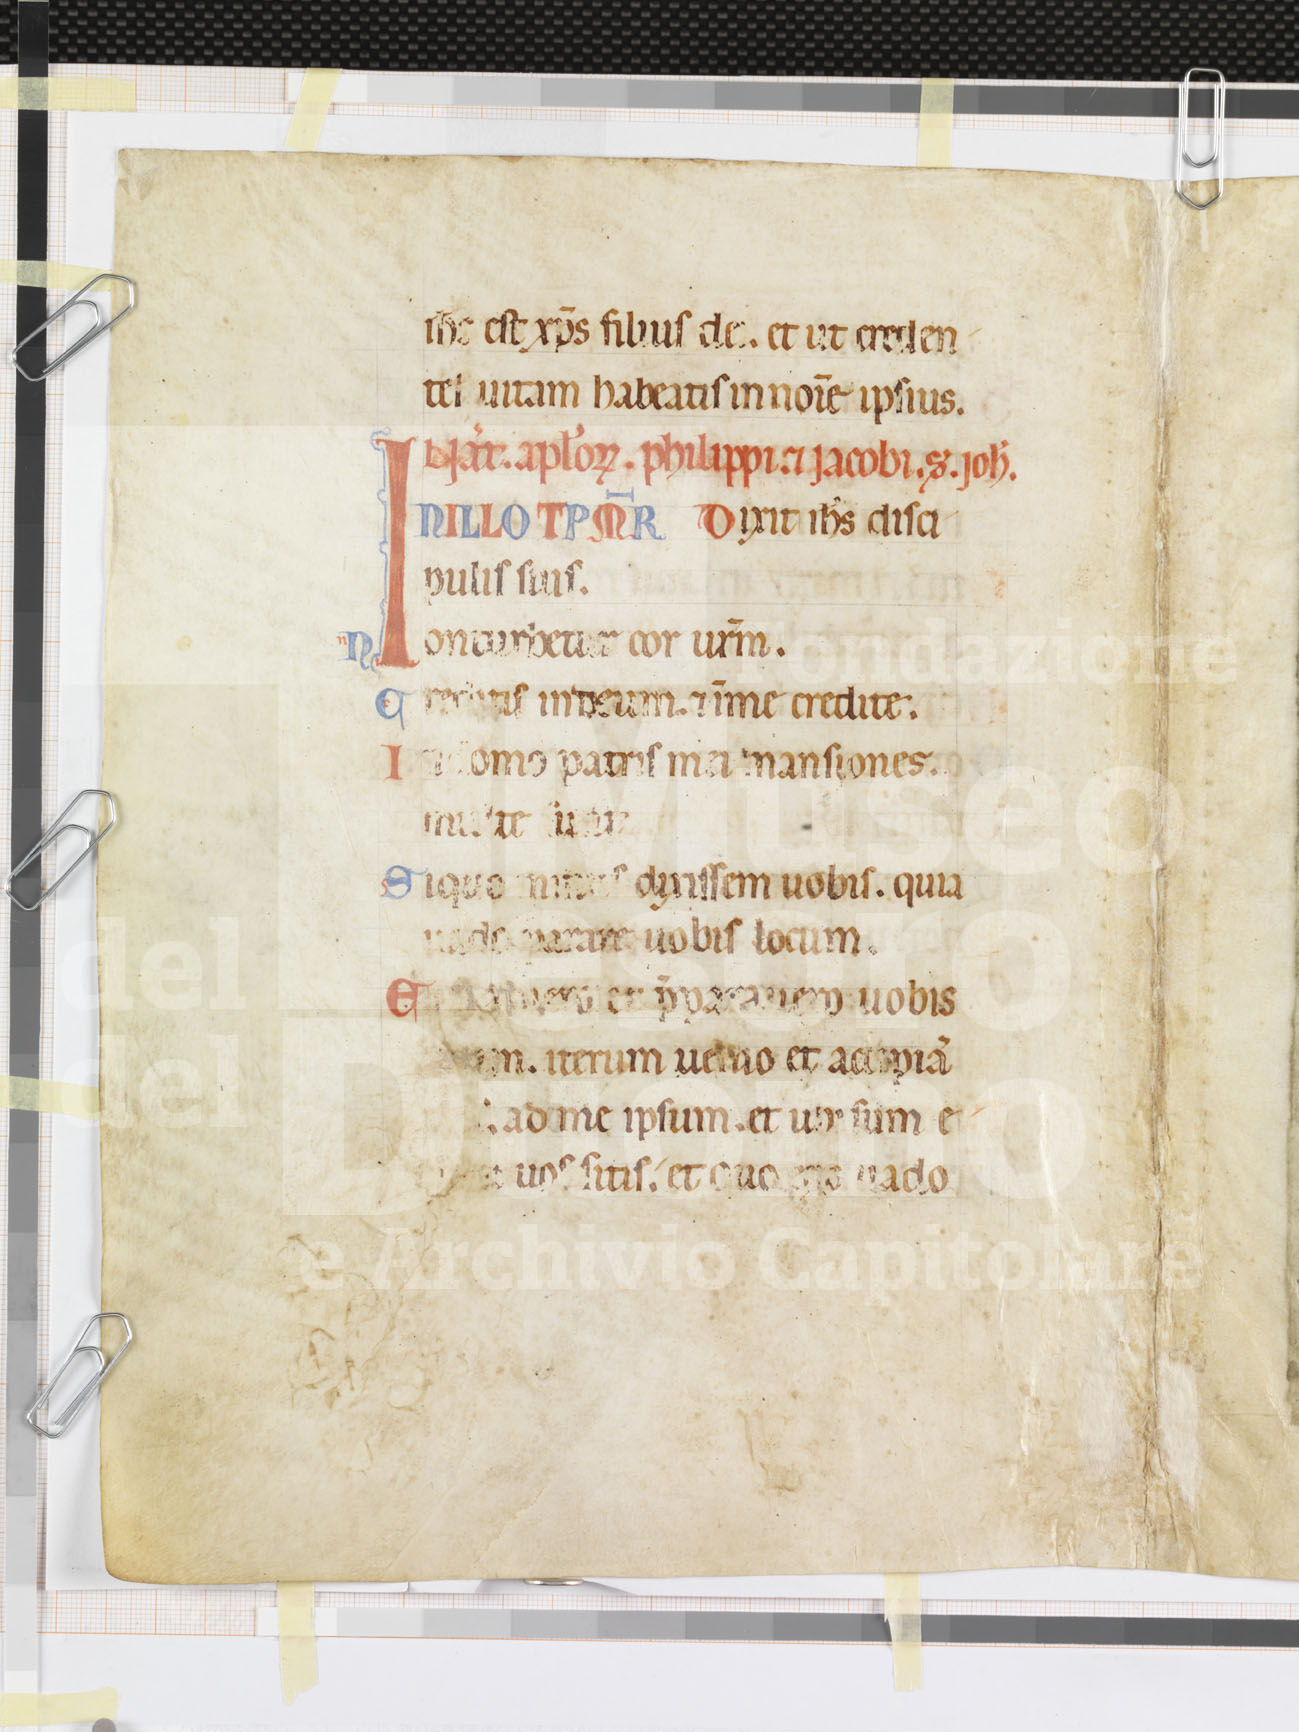 ih̅c est xp̅s filius dei. et ut creden
tes uitam habeatis in noı̅e ipsius.
apl'oꝝ. philippi ⁊ jacobi. s. joh̅.
INILLO TPM̅R Dixit ih̅s disci
pulis suis.
Non turbetur cor ur̅m.
Creditis in deum. ⁊ in̅ me credite.
In domo patris mei mansiones.
multe sunt
Siquo minus dixissem uobis. quia
uado parare uobis locum.
Et et p̅parauero uobis
iterum uenio et accipiā
ad me ipsum. et ubi sum e
uos sitis. et quo ego uado
Fondazione
Museo
del Tesoro
del Duomo
e Archivio Capitolare